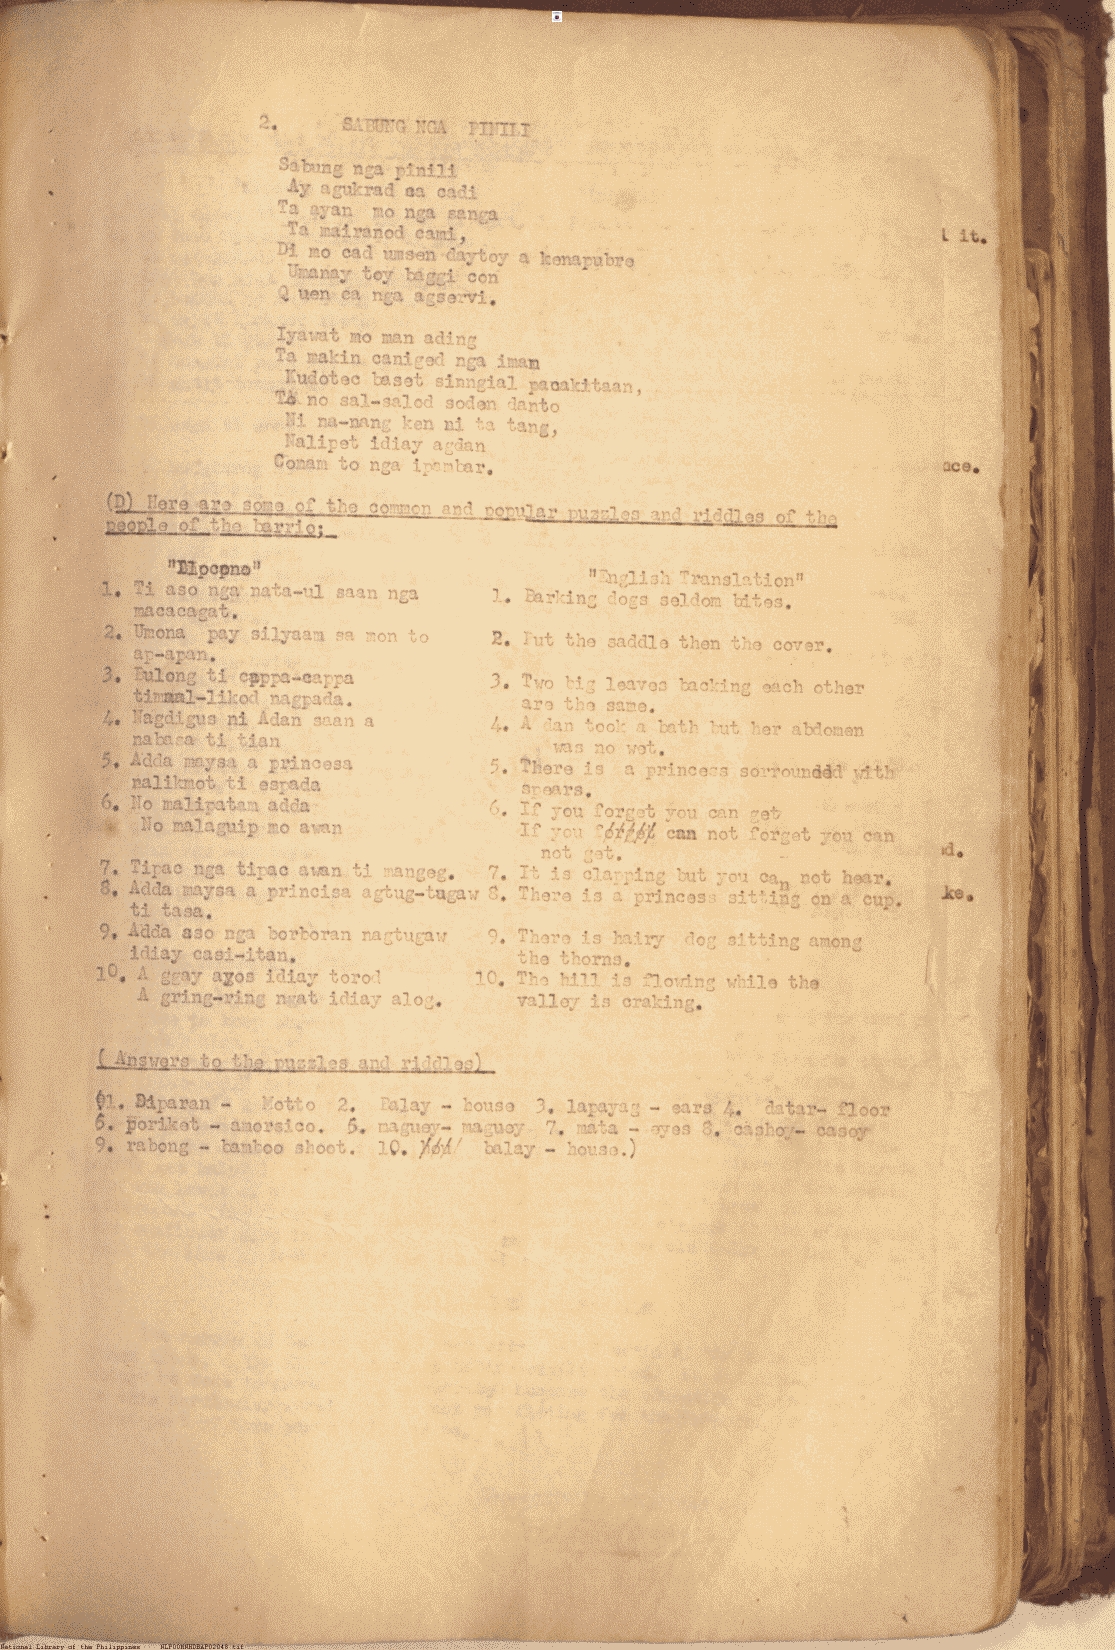 2. SABUNG NGA PINILI
Sabung nga pinili
Ay agukrad ca cadi
Ta ayan mo nga sanga
Ta mairanod cami,
Di mo cad umsen daytoy a kenapubre
Umanay toy baggi con
Q uen ca nga agservi.
Iyawat mo man ading
Ta makin caniged nga iman
Kudotec baset sinngial pacakitaan,
Ta no sal-salod soden danto
Ni na-nang ken ni ta tang,
Nalipet idiay agdan
Conam to nga ipambar.
(D) Here are some of the common and popular puzzles and riddles of the
people of the barrio;
"English Translation"
1. Ti aso nga nata-ul saan nga
macacagat.
1. Barking dogs seldom bites.
2. Umona pay silyaam sa mon to
ap-apan.
2. Put the saddle then the cover.
3. Bulong ti cappa-cappa
timmal-likod nagpada.
3. Two big leaves backing each other
are the same.
4. Nagdigus ni Adan saan a
nabasa ti tian
4. A dan took a bath but her abdomen
was no wet.
5. Adda maysa a princesa
nalikmot ti espada
5. There is a princess sorrounded with
spears.
6. No malipatam adda
No malaguip mo awan
6. If you forget you can get
If you forget can not forget you can
not get.
7. Tipac nga tipac awan ti mangeg.
7. It is clapping but you can not hear.
8. Adda maysa a princisa agtug-tugaw
ti tasa.
8. There is a princess sitting on a cup.
9. Adda aso nga borboran nagtugaw
idiay casi-itan.
9. There is hairy dog sitting among
the thorns.
10. A ggay ayos idiay torod
A gring-ring ngat idiay alog.
10. The hill is flowing while the
valley is craking.
( Answers to the puzzles and riddles)
(1. Diparan - Motto 2. Balay - house 3. lapayag - ears 4. datar- floor
5. poriket - amorsico. 6. maguey- maguey 7. mata - eyes 8. cashoy- casoy
9. rabong - bamboo shoot. 10. balay - house.)
it.
ace.
d.
ke.
National Library of the Philippines